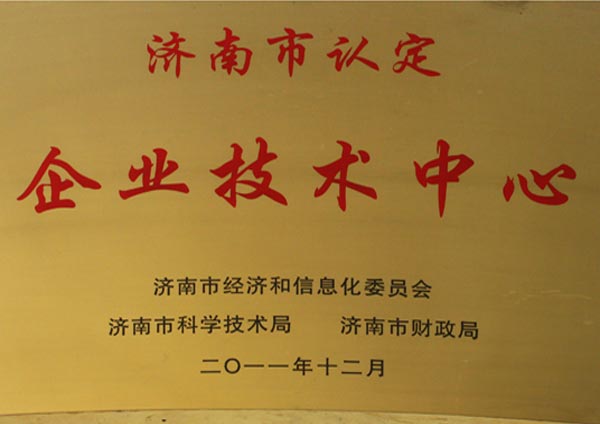 济南市认定
企业技术中心
济南市经济和信息化委员会
济南市科学技术局 济南市财政局
二〇一一年十二月